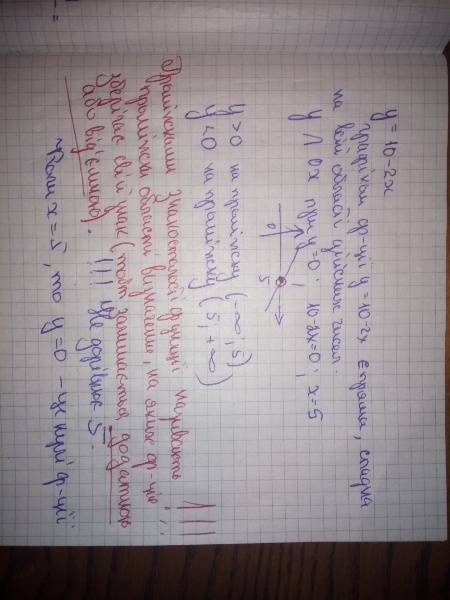 y = 10-2x
графіком ф-ції y = 10-2x є пряма, спадна
на всій області дійсних чисел.
y ∩ ox при y=0; 10-2x=0; x=5
0 5
y>0 на проміжку (-∞; 5)
y<0 на проміжку (5; +∞)
Проміжками знакосталої функції називають
проміжки області визначення, на яких ф-ція
зберігає свій знак (тобто залишається додатною
або від'ємною). !!! не дорівнює 5.
!!!
Коли x = 5, то y=0 - це нулі ф-ції